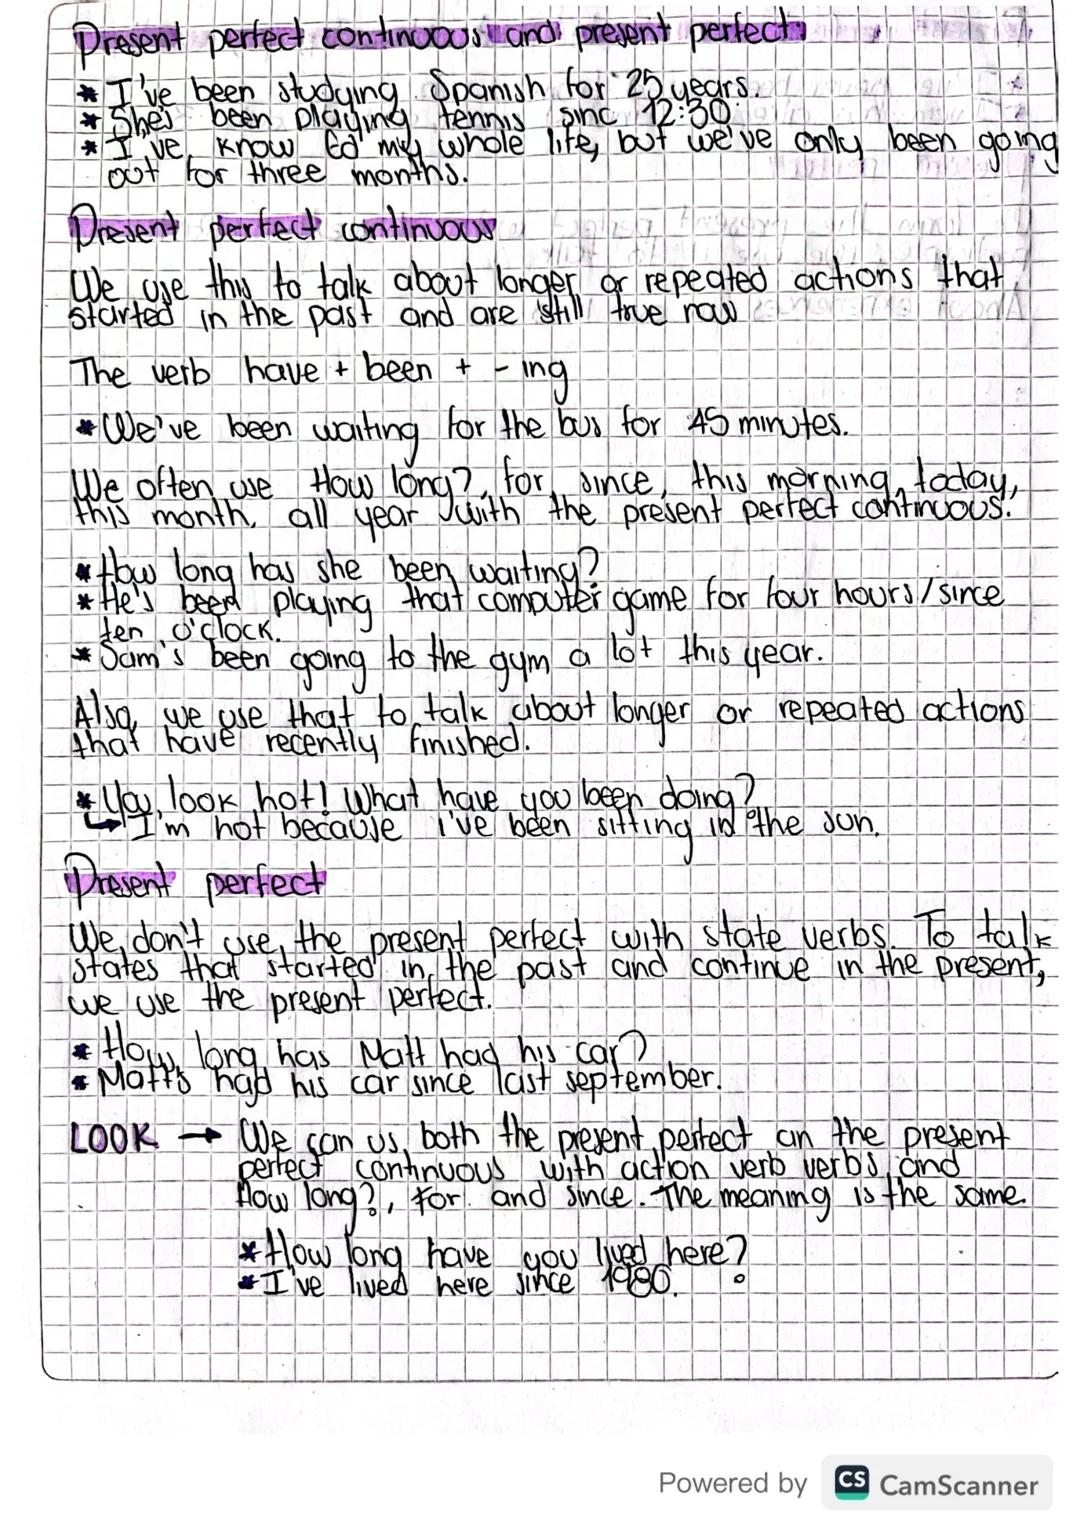 Present perfect continuous and present perfect
* I've been studying Spanish for 25 years.
* She's been playing tennis sinc 12:30.
* I've know Ed my whole life, but we've only been going
out for three months.
Present perfect continuous
We use this to talk about longer or repeated actions that
started in the past and are still true now
The verb have + been + - ing
* We've been waiting for the bus for 45 minutes.
We often use How long?, for, since, this morning, today,
this month, all year with the present perfect continuous.
* How long has she been waiting?
* He's been playing that computer game for four hours/since
ten o'clock.
* Sam's been going to the gym a lot this year.
Also, we use that to talk about longer or repeated actions
that have recently finished.
* You look hot! What have you been doing?
↳ I'm hot because i've been sitting in the sun.
Present perfect
We don't use the present perfect with state verbs. To talk
states that started in the past and continue in the present,
we use the present perfect.
* How long has Matt had his car?
* Matt's had his car since last september.
LOOK → We can us both the present perfect an the present
perfect continuous with action verb verbs and
How long?, for and since. The meaning is the same.
* How long have you lived here?
* I've lived here since 1980.
Powered by CS CamScanner